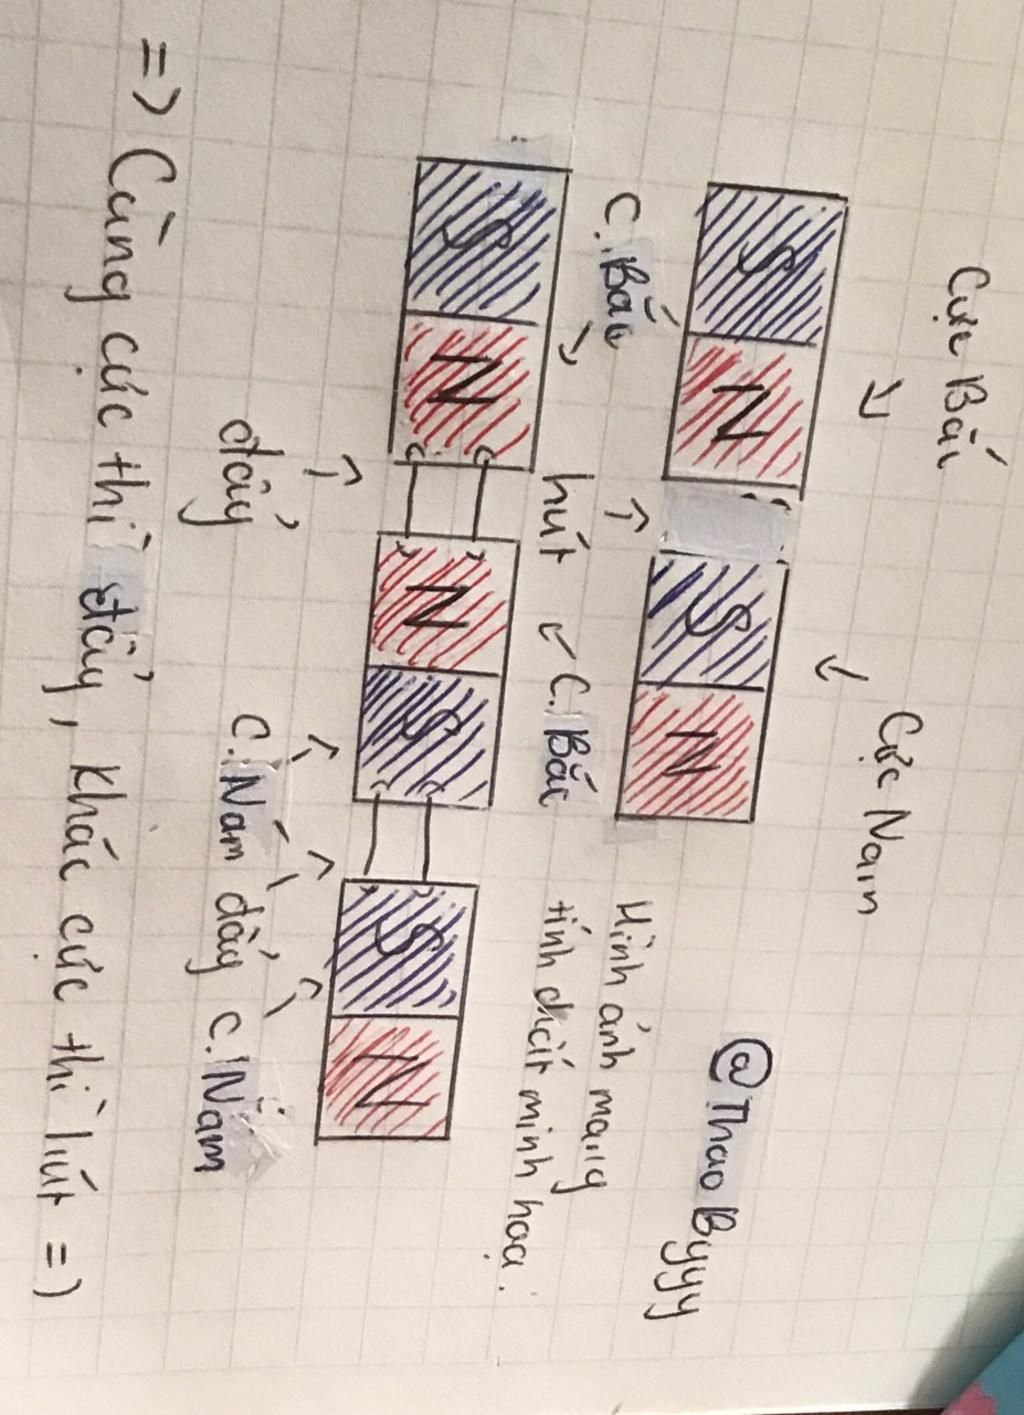 Cực Bắc
Cực Nam
S N S N
hút
@ThaoByyy
C. Bắc
C. Bắc
Hình ảnh mang
tính chất minh hoạ.
S N N S S N
đẩy
C. Nam đẩy C. Nam
=> Cùng cực thì đẩy, khác cực thì hút =)